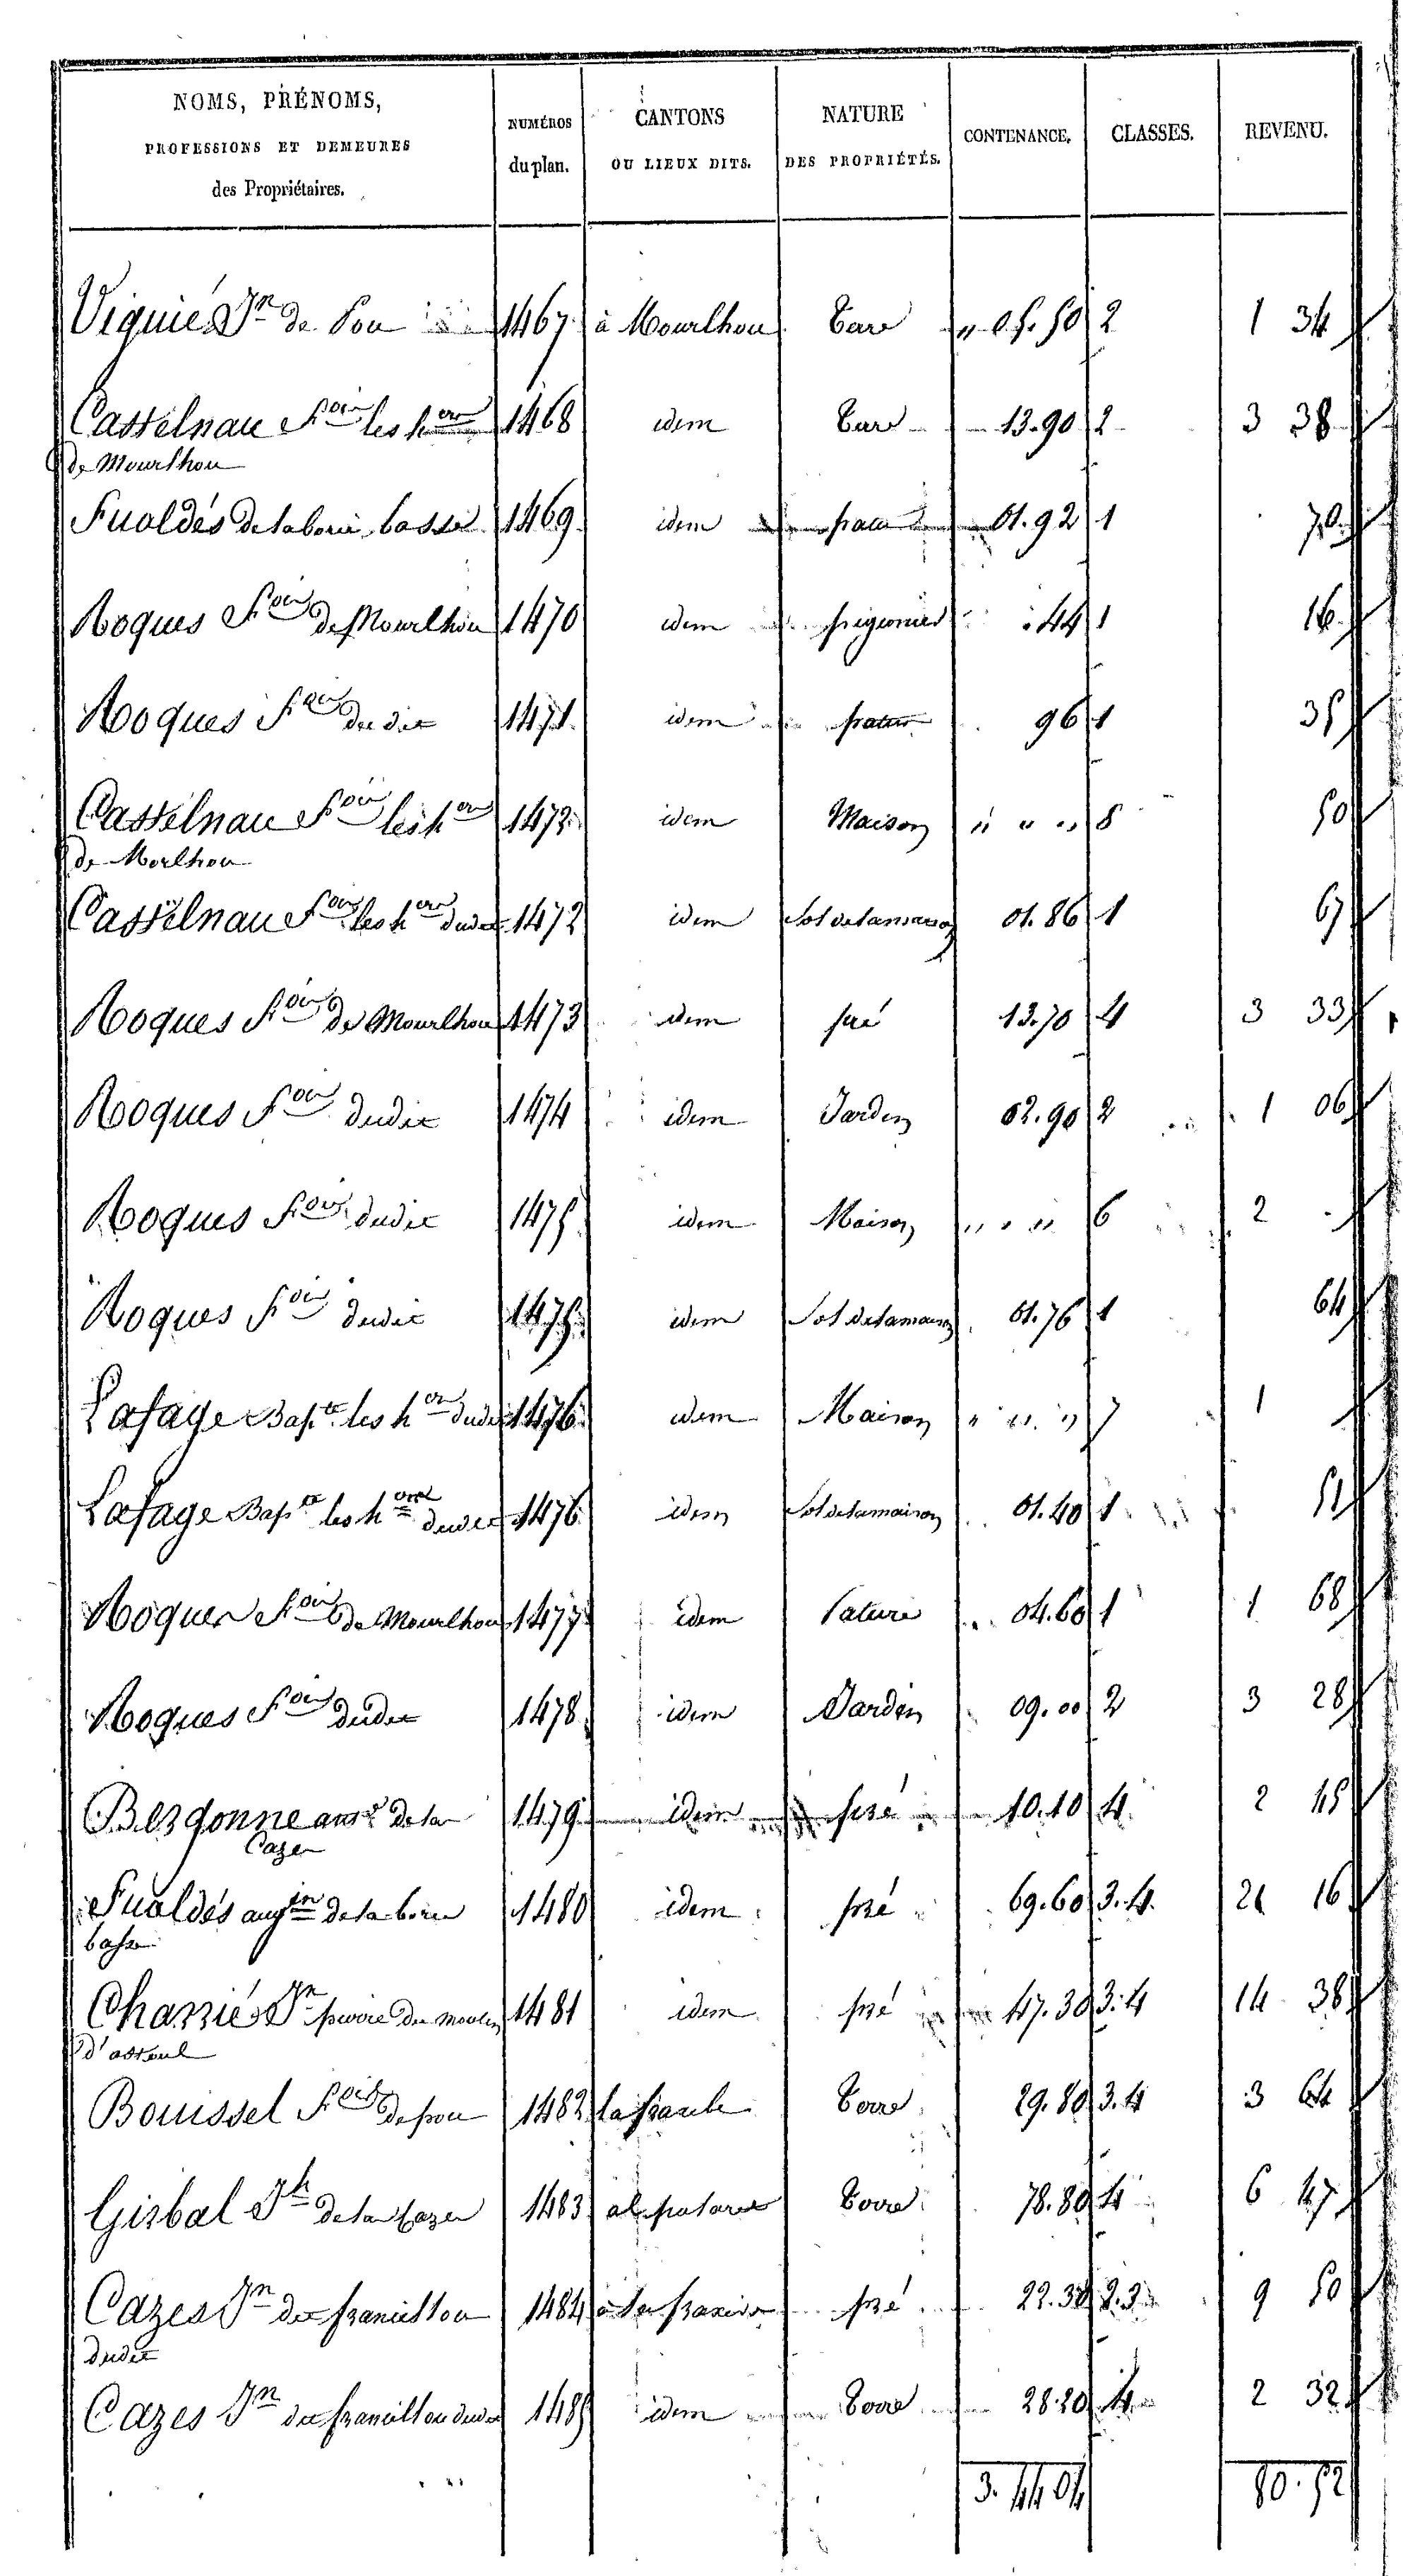 NOMS, PRÉNOMS, PROFESSIONS ET DEMEURES des Propriétaires. NUMÉROS du plan. CANTONS OU LIEUX DITS. NATURE DES PROPRIÉTÉS. CONTENANCE. CLASSES. REVENU.
Viguié Jn de Pou 1467 à Mourlhou 05.50 2 1 34
Castelnau Fois les hers 1468 idem 13.90 2 3 38
de Mourlhou
Fualdés de la borie basse 1469 idem patur 01.92 1 70
Roques Fois de Mourlhou 1470 idem pigeonier 44 1 16
Roques Fois dudit 1471 idem patur 96 1 35
Castelnau Fois les hers 1472 idem Maison " " " 8 50
de Morlhou
Castelnau Fois les hers dudit 1472 idem Sol de la maison 01.86 1 67
Roques Fois de Mourlhou 1473 idem pré 13.70 4 3 33
Roques Fois dudit 1474 idem Jardin 02.90 2 1 06
Roques Fois dudit 1475 idem Maison " " " 6 2
Roques Fois dudit 1475 idem Sol de la maison 01.76 1 64
Lafage Bapte les hers dudit 1476 idem Maison " " " 7 1
Lafage Bapte les hers dudit 1476 idem Sol de la maison 01.40 1 51
Roques Fois de Mourlhou 1477 idem Pature 04.60 1 1 68
Roques Fois dudit 1478 idem Jardin 09.00 2 3 28
de la 1479 idem pré 10.10 4 2 45
Cazes
Fualdés augtin de la borie 1480 idem pré 69.60 3.4. 21 16
basse
Jn du moulin 1481 idem pré 47.30 3.4 14 38
Bouissel Fois de pou 1482 Terre 29.80 3.4 3 64
Gisbal Jh de la Cazes 1483 Terre 78.80 4 6 47
Cazes Jn 1484 pré 22.30 2.3 9 50
dudit
Cazes Jn dudit 1485 idem Terre 28.20 4 2 32
3.44 04 80.52